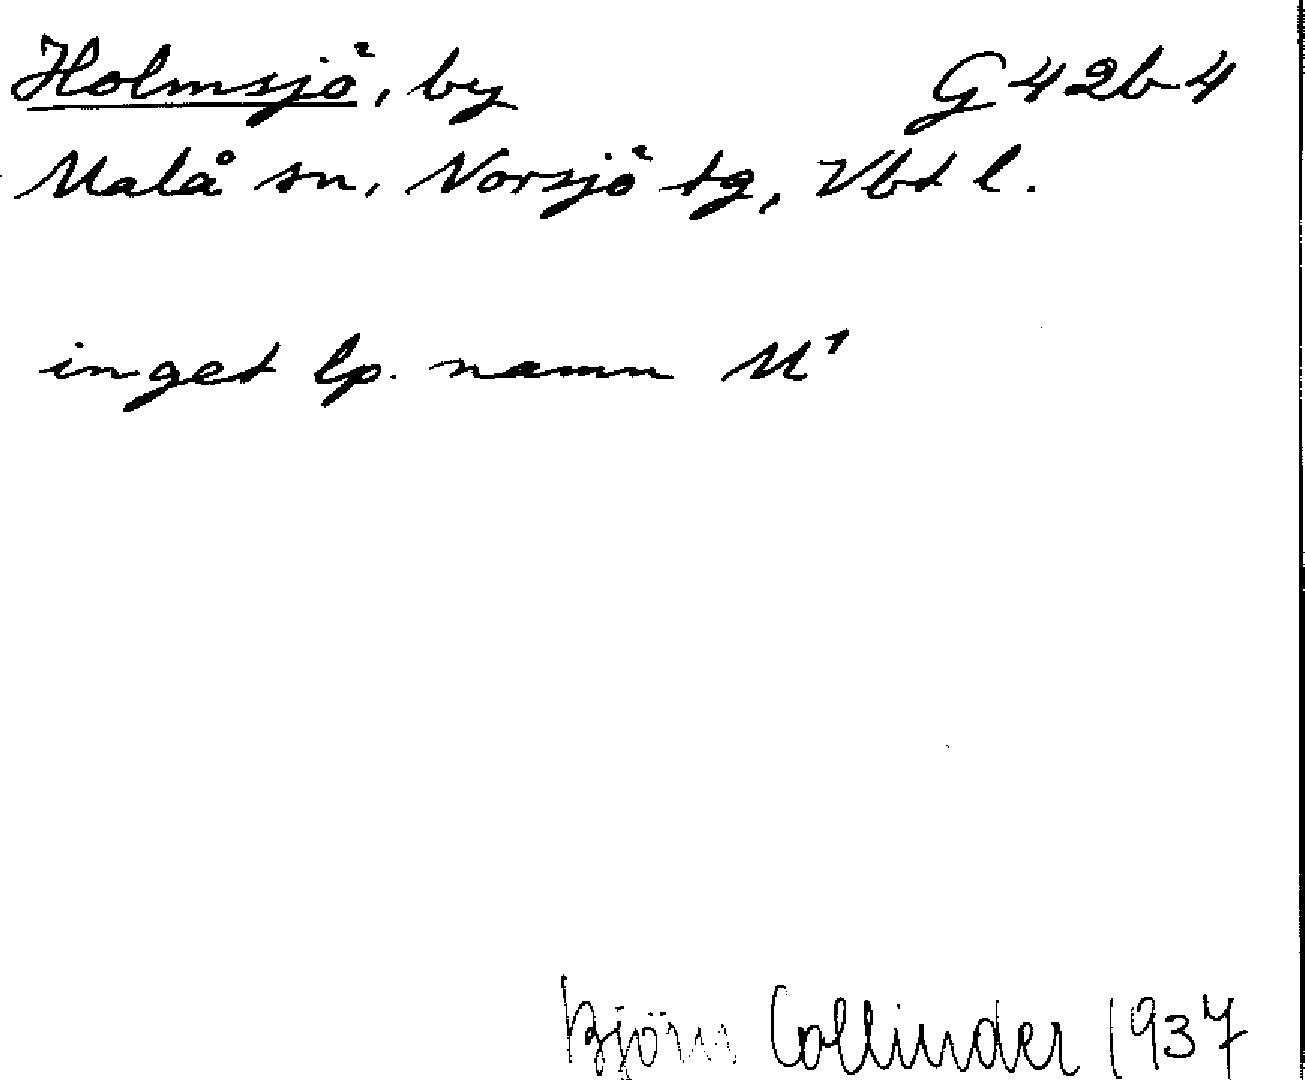 Holmsjö, by G 42b4
Malå sn, Norsjö tg, Vbt l.
inget lp. namn M¹
Björn Collinder 1937